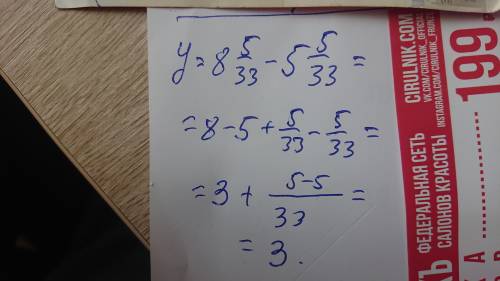 y = 8 5/33 - 5 5/33 =
= 8 - 5 + 5/33 - 5/33 =
= 3 + (5-5)/33 =
= 3.
CIRULNIK.COM
VK.COM/CIRULNIK_OFFICIAL
INSTAGRAM.COM/CIRULNIK_FRUNZ
199
ФЕДЕРАЛЬНАЯ СЕТЬ
САЛОНОВ КРАСОТЫ